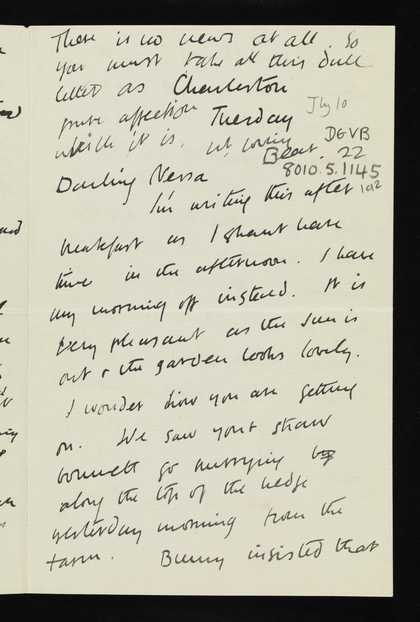 There is no news at all. So
you must take all this dull
letter as Charleston
pure affection Tuesday July 10
which it is. yr loving
Bear. DGVB 22
8010.5.1145
Darling Nessa 1 of 2
I'm writing this after
breakfast as I shant have
time in the afternoon. I have
my morning off instead. It is
very pleasant as the sun is
out & the garden looks lovely.
I wonder how you are getting
on. We saw your straw
bonnett go hurrying
along the top of the hedge
yesterday morning from the
farm. Bunny insisted that